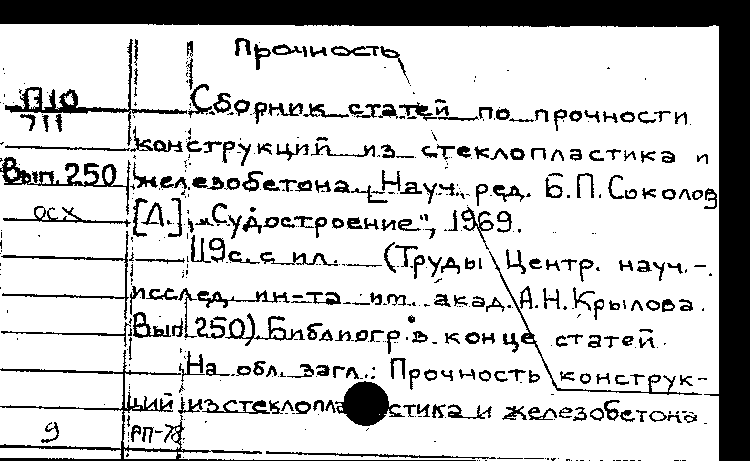 Прочность
П10
711
Сборник статей по прочности
конструкций из стеклопластика и
Вып. 250
железобетона. [Науч. ред. Б.П. Соколов
осх
[Л.], „Судостроение", 1969.
119с. с ил. (Труды Центр. науч.-
исслед. ин-та им. акад. А.Н. Крылова.
Вып 250). Библиогр. в конце статей.
На обл. загл.: Прочность конструк-
ций из стеклопластика и железобетона.
9
РП-78